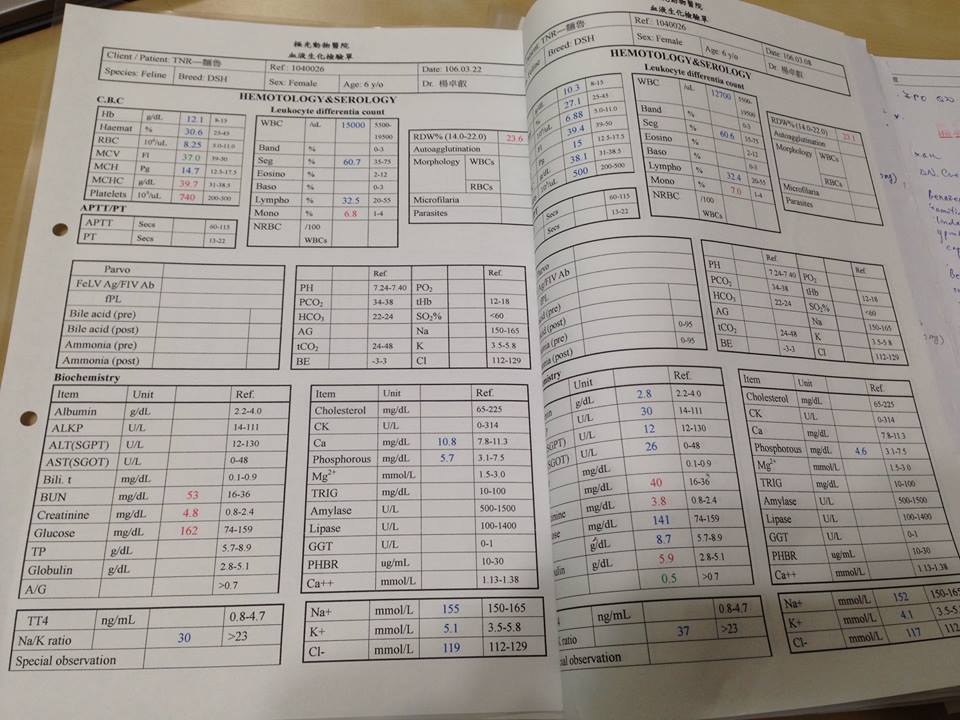 極光動物醫院
血液生化檢驗單
Client / Patient: TNR—麵魯 Ref.: 1040026 Date: 106.03.22
Species: Feline Breed: DSH Sex: Female Age: 6 y/o Dr. 楊卓叡
HEMOTOLOGY&SEROLOGY
C.B.C
Hb g/dL 12.1 8-15
Haemat % 30.6 25-45
RBC 10⁶/uL 8.25 5.0-11.0
MCV Fl 37.0 39-50
MCH Pg 14.7 12.5-17.5
MCHC g/dL 39.7 31-38.5
Platelets 10³/uL 740 200-500
APTT/PT
APTT Secs 60-115
PT Secs 13-22
Leukocyte differentia count
WBC /uL 15000 5500-19500
Band % 0-3
Seg % 60.7 35-75
Eosino % 2-12
Baso % 0-3
Lympho % 32.5 20-55
Mono % 6.8 1-4
NRBC /100 WBCs
RDW% (14.0-22.0) 23.6
Autoagglutination
Morphology WBCs
RBCs
Microfilaria
Parasites
Parvo
FeLV Ag/FIV Ab
fPL
Bile acid (pre)
Bile acid (post)
Ammonia (pre)
Ammonia (post)
Ref. Ref.
PH 7.24-7.40 PO₂
PCO₂ 34-38 tHb 12-18
HCO₃ 22-24 SO₂% <60
AG Na 150-165
tCO₂ 24-48 K 3.5-5.8
BE -3-3 Cl 112-129
Biochemistry
Item Unit Ref.
Albumin g/dL 2.2-4.0
ALKP U/L 14-111
ALT(SGPT) U/L 12-130
AST(SGOT) U/L 0-48
Bili. t mg/dL 0.1-0.9
BUN mg/dL 53 16-36
Creatinine mg/dL 4.8 0.8-2.4
Glucose mg/dL 162 74-159
TP g/dL 5.7-8.9
Globulin g/dL 2.8-5.1
A/G >0.7
Item Unit Ref.
Cholesterol mg/dL 65-225
CK U/L 0-314
Ca mg/dL 10.8 7.8-11.3
Phosphorous mg/dL 5.7 3.1-7.5
Mg²⁺ mmol/L 1.5-3.0
TRIG mg/dL 10-100
Amylase U/L 500-1500
Lipase U/L 100-1400
GGT U/L 0-1
PHBR ug/mL 10-30
Ca++ mmol/L 1.13-1.38
TT4 ng/mL 0.8-4.7
Na/K ratio 30 >23
Special observation
Na+ mmol/L 155 150-165
K+ mmol/L 5.1 3.5-5.8
Cl- mmol/L 119 112-129
光動物醫院
血液生化檢驗單
Patient: TNR—麵魯 Ref.: 1040026 Date: 106.03.08
Feline Breed: DSH Sex: Female Age: 6 y/o Dr. 楊卓叡
HEMOTOLOGY&SEROLOGY
g/dL 10.3 8-15
% 27.1 25-45
10⁶/uL 6.88 5.0-11.0
39.4 39-50
Pg 15 12.5-17.5
g/dL 38.1 31-38.5
10³/uL 500 200-500
PT
Secs 60-115
Secs 13-22
Leukocyte differentia count
WBC /uL 12700 5500-19500
Band % 0-3
Seg % 60.6 35-75
Eosino % 2-12
Baso % 0-3
Lympho % 32.4 20-55
Mono % 7.0 1-4
NRBC /100 WBCs
RDW% (14.0-22.0) 23.1
Autoagglutination
Morphology WBCs
RBCs
Microfilaria
Parasites
Parvo
Ag/FIV Ab
fPL
acid (pre)
acid (post) 0-95
onia (pre) 0-95
onia (post)
Ref. Ref.
PH 7.24-7.40 PO₂
PCO₂ 34-38 tHb 12-18
HCO₃ 22-24 SO₂% <60
AG Na 150-165
tCO₂ 24-48 K 3.5-5.8
BE -3-3 Cl 112-129
mistry
Unit Ref.
g/dL 2.8 2.2-4.0
U/L 30 14-111
GPT) U/L 12 12-130
SGOT) U/L 26 0-48
mg/dL 0.1-0.9
mg/dL 40 16-36
inine mg/dL 3.8 0.8-2.4
ose mg/dL 141 74-159
g/dL 8.7 5.7-8.9
ulin g/dL 5.9 2.8-5.1
0.5 >0.7
Item Unit Ref.
Cholesterol mg/dL 65-225
CK U/L 0-314
Ca mg/dL 7.8-11.3
Phosphorous mg/dL 4.6 3.1-7.5
Mg²⁺ mmol/L 1.5-3.0
TRIG mg/dL 10-100
Amylase U/L 500-1500
Lipase U/L 100-1400
GGT U/L 0-1
PHBR ug/mL 10-30
Ca++ mmol/L 1.13-1.38
ng/mL 0.8-4.7
K ratio 37 >23
ial observation
Na+ mmol/L 152 150-165
K+ mmol/L 4.1 3.5-5.8
Cl- mmol/L 117 112